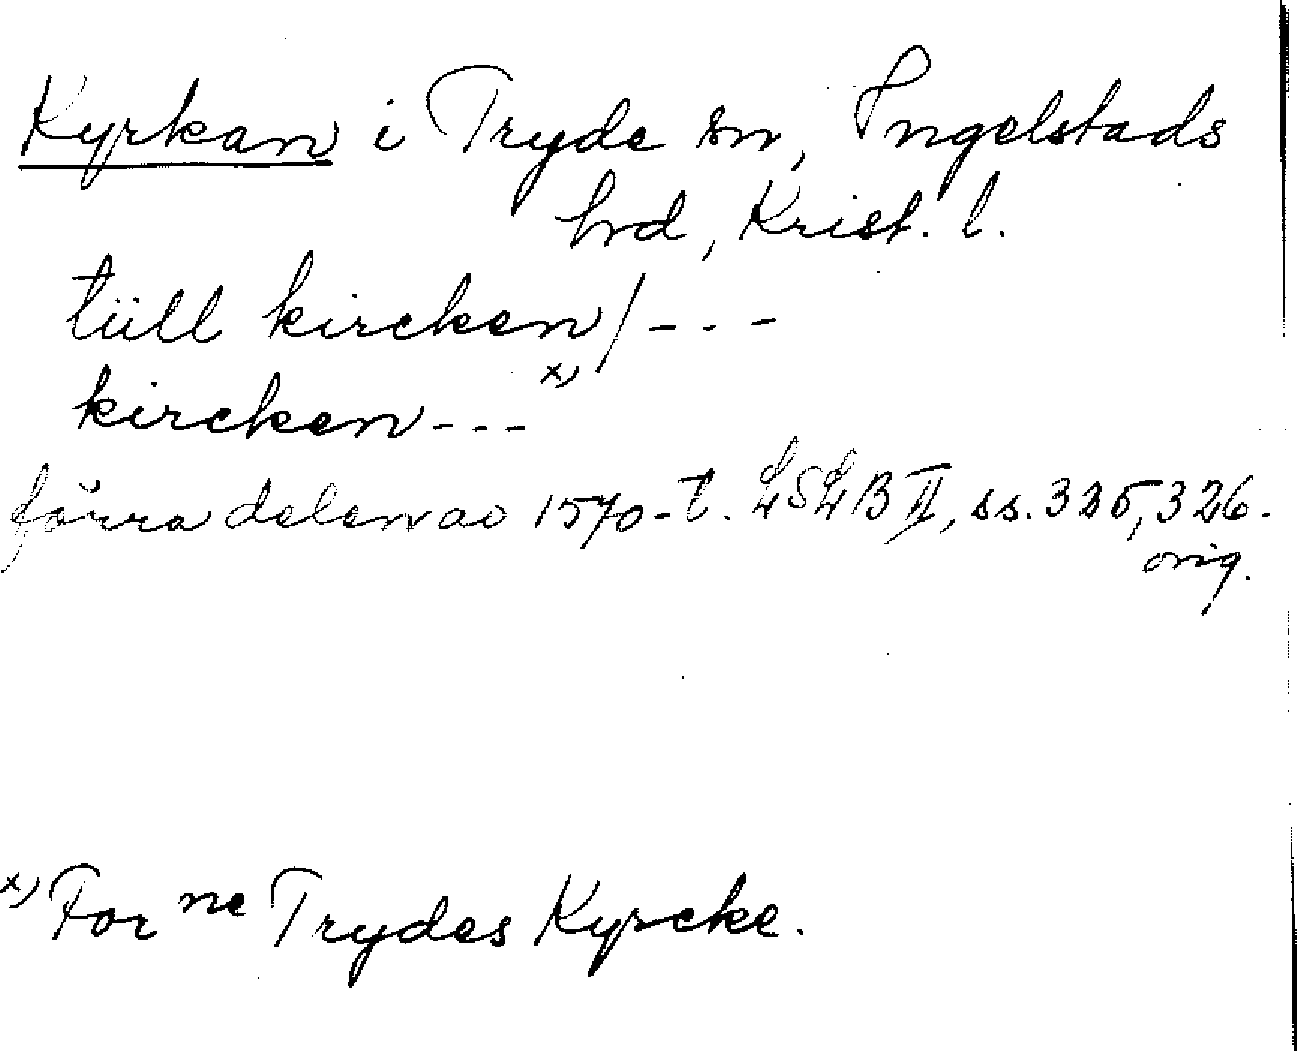 Kyrkan i Tryde sn, Ingelstads
hrd, Krist. l.
tüll kircken/ - - -
kircken - - - x)
förra delen av 1570-t. LSLB II, ss. 325, 326.
orig.
x) For ne Trydes Kyrcke.